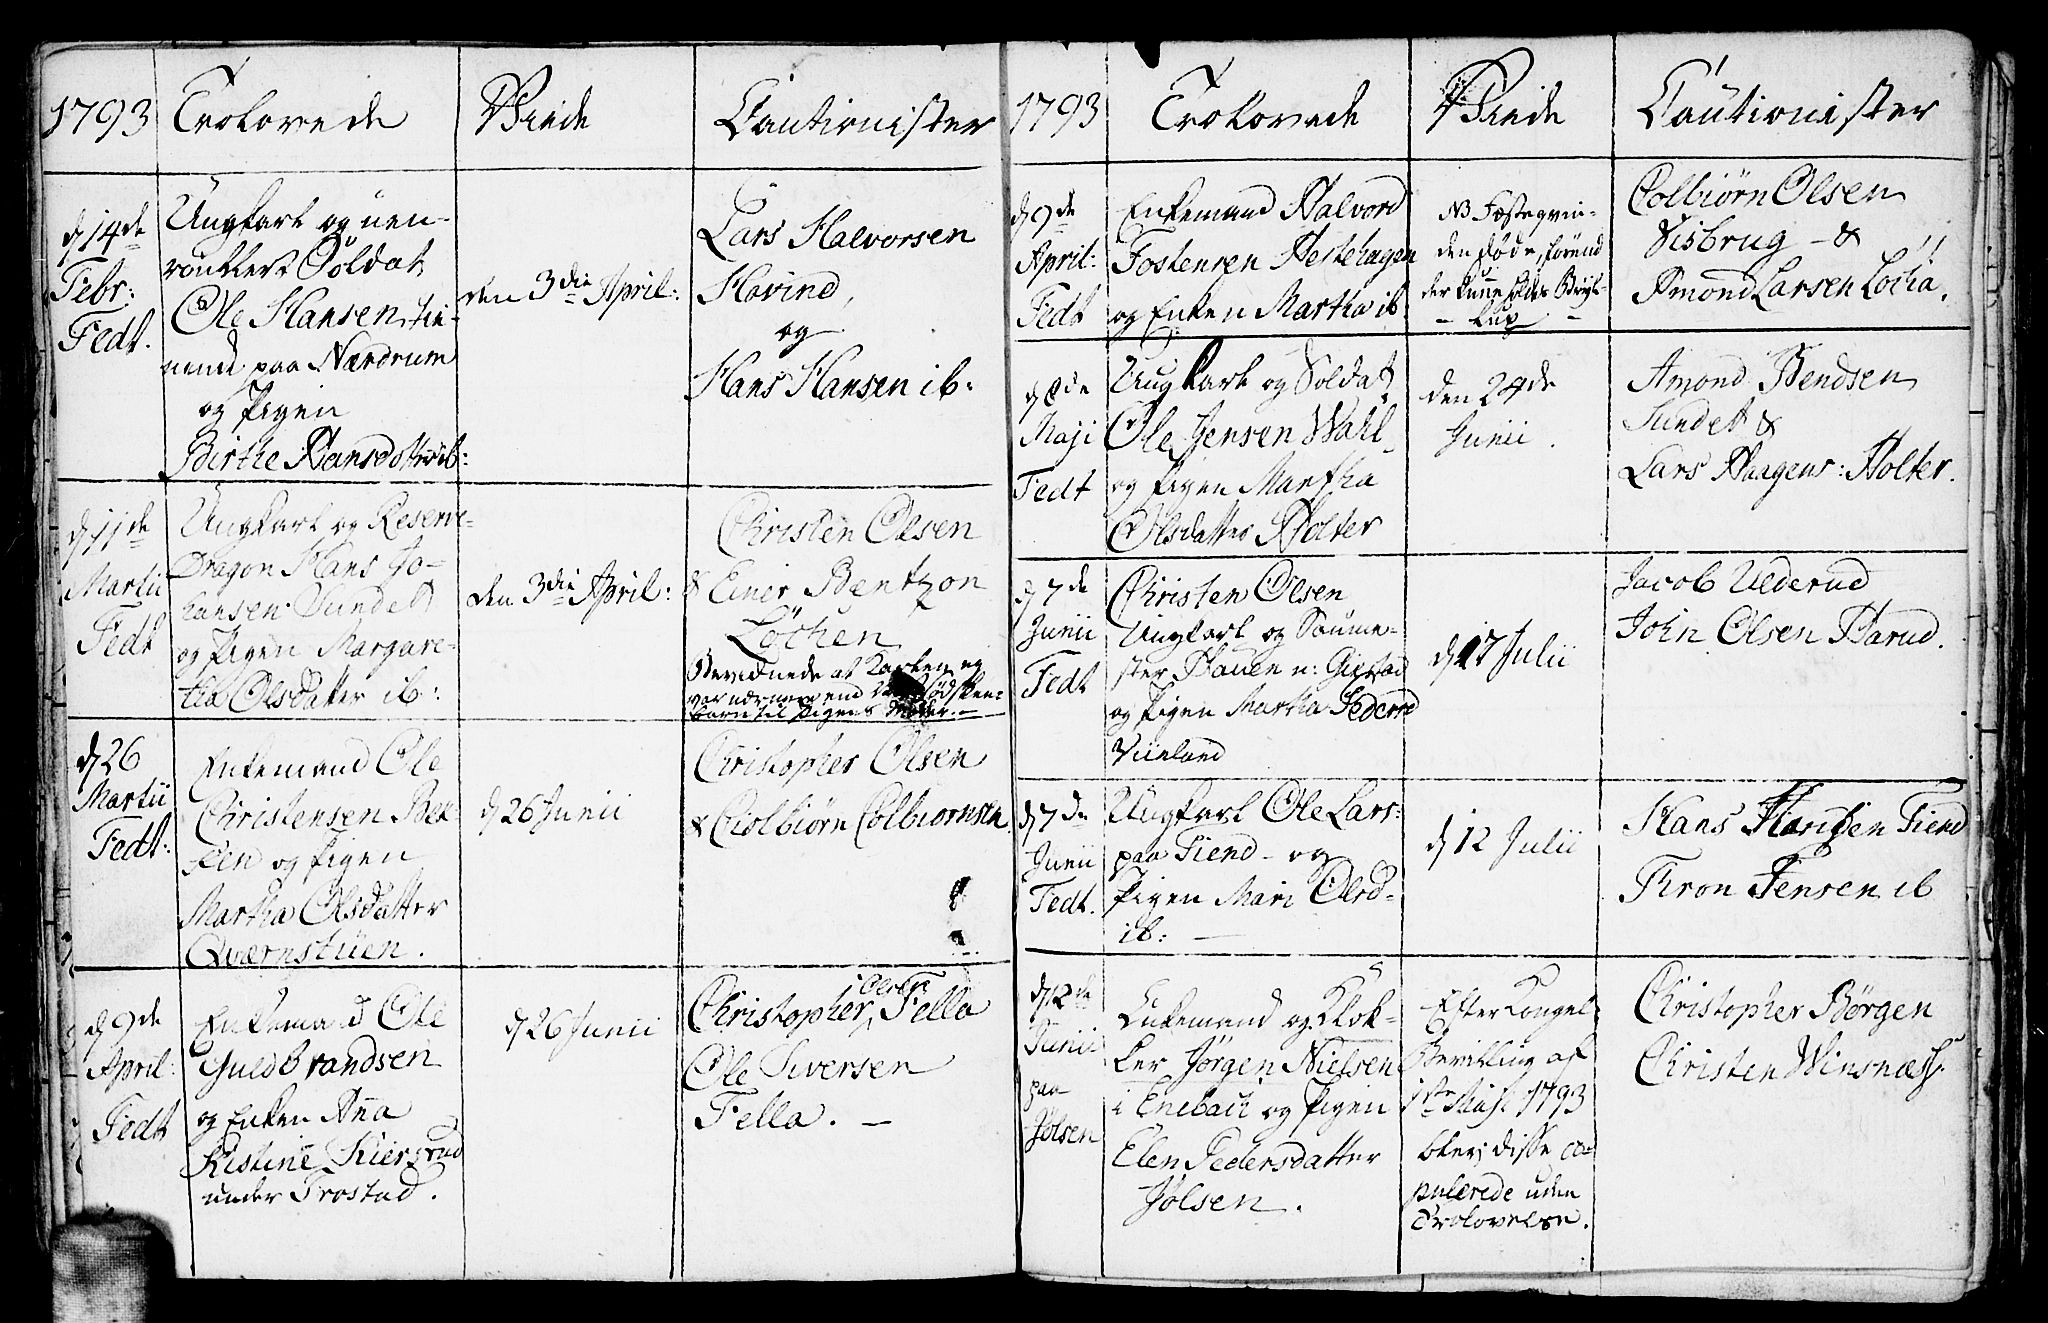 1793 Trolovede Viede Cautionister
d 14de
Febr:
Fedt.
Ungkarl og uen-
roullert Soldat
Ole Hansen, tie-
nende paa Nærdrum
og Pigen
Birthe Hansdotter ib:
den 3die April:
Lars Halvorsen
Hovind,
og
Hans Hansen ib:
d 11de
Martii
Fedt
Ungkarl og Reserve-
Dragon Hans Jo-
hansen Sundet
og Pigen Margare-
tha Olsdatter ib:
den 3die April:
Christen Olsen
& Einer Bentzon
Løchen
Bevidnede at Karlen ey
var nærmere end Sødsken-
barn til Pigens Moder. -
d 26
Martii
Fedt:
Enkemand Ole
Christensen Bek-
ken og Pigen
Martha Olsdatter
Qværnstuen.
d 26 Junii
Christopher Olsen
& Colbiørn Colbiornsen
d 9de
April:
Fedt
Enkemand Ole
Guldbrandsen
og Enken Ana
Kistine Kiersrud
under Trostad.
d 26 Junii
Christopher Olsen Fella
Ole Siversen
Fella. -
1793 Trolovede Viede Cautionister
d 9de
April:
Fedt
Enkemand Halvord
Tostensen Hestehagen
og Enken Martha ib
NB Fæsteqvin-
den døde, førend
der kunne holdes Bryl-
- lup -
Colbiørn Olsen
Sisbrug - &
Amond Larsen Locha.
d 8de
Maji
Fedt
Ungkarl og Soldat
Ole Jensen Wahl
og Pigen Martha
Olsdatter Holter
den 24de
Junii.
Amond Bendsen
Sundet &
Lars Haagens: Holter.
d 7de
Junii
Fedt
Christen Olsen
Ungkarl og Saume-
ster Hauen u: Gierstad
og Pigen Martha Pedersd
Viinland
d 17 Julii
Jacob Ulderud
John Olsen Barud.
d 7de
Junii
Fedt.
Ungkarl Ole Lars:
paa Tiend - og
Pigen Mari Olsd-
ib: -
d 12 Julii
Hans Hansen Tiend
Thron Jensen ib
d 12de
Junii
paa
Jølsen
Enkemand og Klok-
ker Jørgen Nielsen
i Enebach og Pigen
Elen Pedersdatter
Jølsen.
Efter Kongel:
Bevilling af
1ste Maji 1793
blev disse co-
pulerede uden
Trolovelse.
Christopher Børgen
Christen Winsnæs.